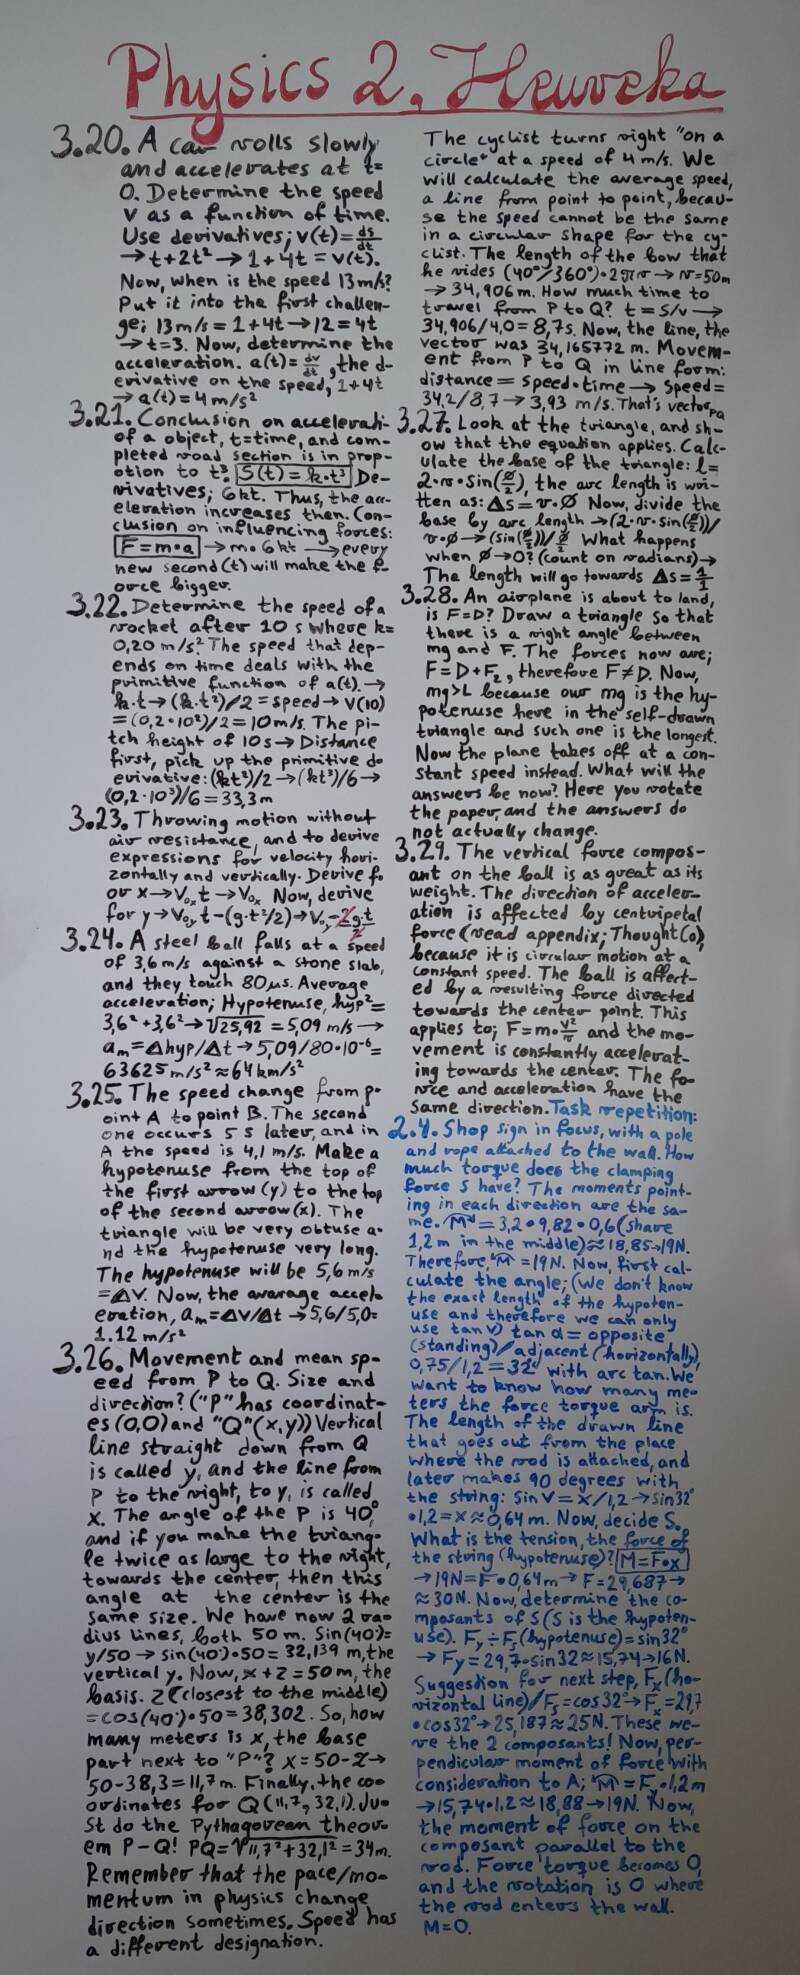 Physics 2, Heureka
3.20. A car rolls slowly
and accelerates at t=
0. Determine the speed
v as a function of time.
Use derivatives; v(t)=ds/dt
→t+2t²→1+4t=v(t).
Now, when is the speed 13m/s?
Put it into the first challen-
ge; 13m/s=1+4t→12=4t
→t=3. Now, determine the
acceleration. a(t)=dv/dt, the d-
erivative on the speed, 1+4t
→a(t)=4m/s²
3.21. Conclusion on accelerati-
of a object, t=time, and com-
pleted road section is in prop-
otion to t³. S(t)=k·t³ De-
rivatives; 6kt. Thus, the acc-
eleration increases then. Con-
clusion on influencing forces:
F=m·a→m·6kt→every
new second(t) will make the f-
orce bigger.
3.22. Determine the speed of a
rocket after 10 s where k=
0,20 m/s². The speed that dep-
ends on time deals with the
primitive function of a(t).→
k·t→(k·t²)/2=speed→V(10)
=(0,2·10²)/2=10m/s. The pi-
tch height of 10s→Distance
first, pick up the primitive de
erivative:(kt²)/2→(kt³)/6→
(0,2·10³)/6=33,3m
3.23. Throwing motion without
air resistance, and to derive
expressions for velocity hori-
zontally and vertically. Derive f-
or x→V₀ₓt→V₀ₓ Now, derive
for y→V₀yt-(g·t²/2)→V₀y-2g·t/2
3.24. A steel ball falls at a speed
of 3,6m/s against a stone slab,
and they touch 80µs. Average
acceleration; Hypotenuse, hyp²=
3,6²+3,6²→√25,92=5,09 m/s→
aₘ=Δhyp/Δt→5,09/80·10⁻⁶=
63625m/s²≈64km/s²
3.25. The speed change from p-
oint A to point B. The second
one occurs 5 s later, and in
A the speed is 4,1 m/s. Make a
hypotenuse from the top of
the first arrow (y) to the top
of the second arrow(x). The
triangle will be very obtuse a-
nd the hypotenuse very long.
The hypotenuse will be 5,6 m/s
=ΔV. Now, the avarage accel-
eration, aₘ=ΔV/Δt→5,6/5,0=
1.12 m/s²
3.26. Movement and mean sp-
eed from P to Q. Size and
direction? ("P" has coordinat-
es (0,0) and "Q"(x,y)) Vertical
line straight down from Q
is called y, and the line from
P to the right, to y, is called
x. The angle of the P is 40°,
and if you make the triang-
le twice as large to the right,
towards the center, then this
angle at the center is the
same size. We have now 2 ra-
dius lines, both 50 m. Sin(40°)=
y/50→sin(40°)·50=32,139 m, the
vertical y. Now, x+z=50m, the
basis. Z (closest to the middle)
=cos(40°)·50=38,302. So, how
many meters is x, the base
part next to "P"? X=50-Z→
50-38,3=11,7m. Finally, the co-
ordinates for Q(11,7, 32,1). Ju-
st do the Pythagorean theor-
em P-Q! PQ=√11,7²+32,1²=34m.
Remember that the pace/mo-
mentum in physics change
direction sometimes. Speed has
a different designation.
The cyclist turns right "on a
circle" at a speed of 4 m/s. We
will calculate the average speed,
a line from point to point, becau-
se the speed cannot be the same
in a circular shape for the cy-
clist. The length of the bow that
he rides (40°/360°)·2πr→r=50m
→34,906m. How much time to
travel from P to Q? t=s/v→
34,906/4,0=8,7s. Now, the line, the
vector was 34,165772 m. Movem-
ent from P to Q in line form:
distance=speed·time→Speed=
34,2/8,7→3,93 m/s. That's vector PQ
3.27. Look at the triangle, and sh-
ow that the equation applies. Calc-
ulate the base of the triangle: l=
2·r·sin(Ø/2), the arc length is wri-
tten as: Δs=r·Ø Now, divide the
base by arc length→(2·r·sin(Ø/2))/
r·Ø→(sin(Ø/2))/Ø/2 What happens
when Ø→0? (count on radians)→
The length will go towards Δs=1/1
3.28. An airplane is about to land,
is F=D? Draw a triangle so that
there is a right angle between
mg and F. The forces now are;
F=D+F₂, therefore F≠D. Now,
mg>L because our mg is the hy-
potenuse here in the self-drawn
triangle and such one is the longest.
Now the plane takes off at a con-
stant speed instead. What will the
answers be now? Here you rotate
the paper, and the answers do
not actually change.
3.29. The vertical force compos-
ant on the ball is as great as its
weight. The direction of acceler-
ation is affected by centripetal
force (read appendix; ThoughtCo),
because it is circular motion at a
constant speed. The ball is affect-
ed by a resulting force directed
towards the center point. This
applies to; F=m·v²/r and the mo-
vement is constantly accelerat-
ing towards the center. The fo-
rce and acceleration have the
same direction. Task repetition:
2.4. Shop sign in focus, with a pole
and rope attached to the wall. How
much torque does the clamping
force S have? The moments point-
ing in each direction are the sa-
me. M=3,2·9,82·0,6(share
1,2m in the middle)≈18,85→19N.
Therefore, M=19N. Now, first cal-
culate the angle; (We don't know
the exact length of the hypoten-
use and therefore we can only
use tan v) tan α=opposite
(standing)/adjacent (horizontally),
0,75/1,2=32° with arc tan. We
want to know how many me-
ters the force torque arm is.
The length of the drawn line
that goes out from the place
where the rod is attached, and
later makes 90 degrees with
the string: Sin V=X/1,2→sin32°
·1,2=x≈0,64m. Now, decide S.
What is the tension, the force of
the string (hypotenuse)? M=F·x
→19N=F·0,64m→F=29,687→
≈30N. Now, determine the co-
mposants of S(S is the hypoten-
use). Fy÷Fs(hypotenuse)=sin32°
→Fy=29,7·sin32≈15,74→16N.
Suggestion for next step, Fx(ho-
rizontal line)/Fs=cos32°→Fx=29,7
·cos32°→25,187≈25N. These we-
re the 2 composants! Now, per-
pendicular moment of force with
consideration to A; M=Fy·1,2m
→15,74·1,2≈18,88→19N. Now,
the moment of force on the
composant parallel to the
rod. Force torque becomes 0,
and the rotation is 0 where
the rod enters the wall.
M=0.